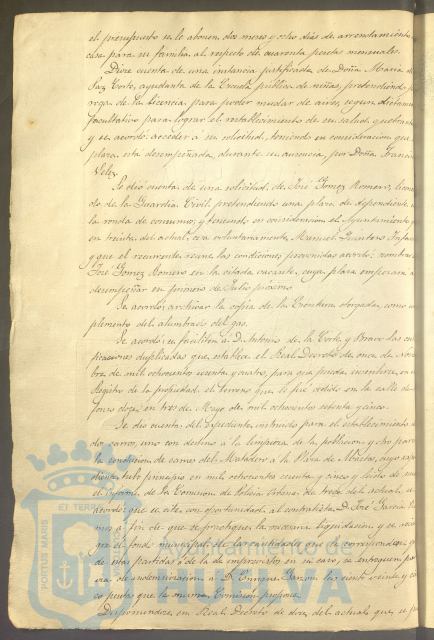 el presupuesto se le abonen dos meses y ocho dias de arrendamiento
casa para su familia al respecto de cuarenta pesetas mensuales.
Diose cuenta de una instancia justificada de Doña Maria
Paz Cortes, ayudanta de la Escuela publica de niñas, pretendiendo
de la licencia para poder mudar de aires, segun dictamen
facultativo para lograr el restablecimiento de su salud
y se acordó acceder á su solicitud, teniendo en consideracion que
plaza está desempeñada, durante su ausencia, por Doña
Velez
Se dió cuenta de una solicitud de José Gomez Romero,
do de la Guardia Civil pretendiendo una plaza de dependiente
la ronda de consumos; y teniendo en consideracion el Ayuntamiento
en treinta del actual, cesa voluntariamente Manuel Quintero Infante
y que el recurrente reune las condiciones prevenidas acordó: nombrar
José Gomez Romero en la citada vacante, cuya plaza empezará
desempeñar en primero de Julio próximo.
Se acordó: archivar la copia de la Escritura otorgada, como
plemento del alumbrado del gas.
Se acordó: se faciliten á D. Antonio de la Corte y Bravo las
duplicadas que establece el Real Decreto de once de
bre de mil ochocientos sesenta y cuatro, para que pueda inscribir en
Registro de la propiedad, el terreno que le fué cedido en la calle de
doce, en tres de Mayo de mil ochocientos setenta y cinco.
Se dió cuenta del Expediente instruido para el establecimiento
dos carros, uno con destino á la limpieza de la poblacion y otro para
la conduccion de carnes del Matadero á la Plaza de Abastos, cuyo
diente tubo principio en mil ochocientos setenta y cinco y leido
el informe de la Comision de Policia Urbana de trece del actual, se
acordó: que se cite con oportunidad al contratista D. José Garcia
á fin de que se practique la liquidacion y se
el fondo municipal de las cantidades que le correspondan
de esta partida ó de la de imprevistos en su caso, se entreguen
via de indemnizacion á D. Enrique Garzon las ciento veinte y
co pesetas que la misma Comision propone.
Disponiendose en Real Decreto de doce del actual que se
PORTUS MARIS ET TERRAE
Ayuntamiento de
HUELVA